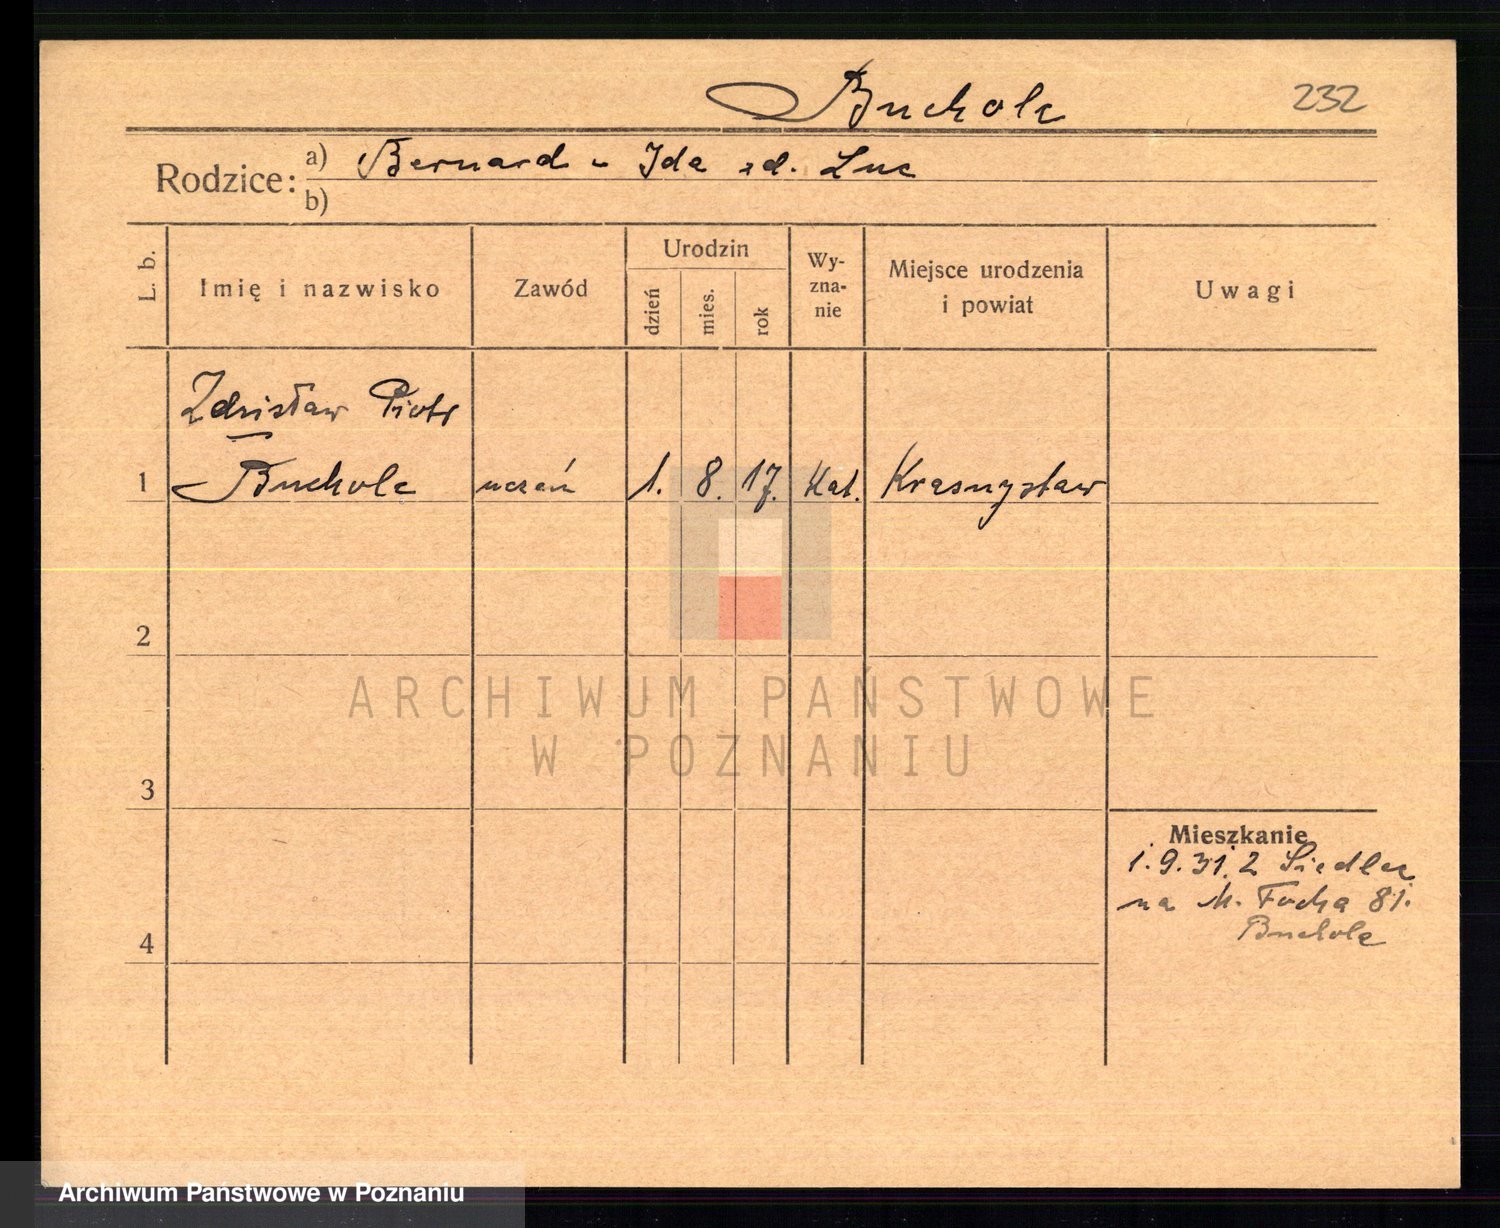 Bucholc
232
Rodzice: a) Bernard - Ida zd. Luc
b)
L. b.
Imię i nazwisko
Zawód
Urodzin
dzień
mies.
rok
Wy-
zna-
nie
Miejsce urodzenia
i powiat
Uwagi
Zdzisław Piotr
1 Bucholc uczeń 1. 8. 17. Kat. Krasnystaw
2
3
4
Mieszkanie
1.9.31. z Siedlec
na M. Focha 81.
Bucholc
ARCHIWUM PAŃSTWOWE
W POZNANIU
Archiwum Państwowe w Poznaniu